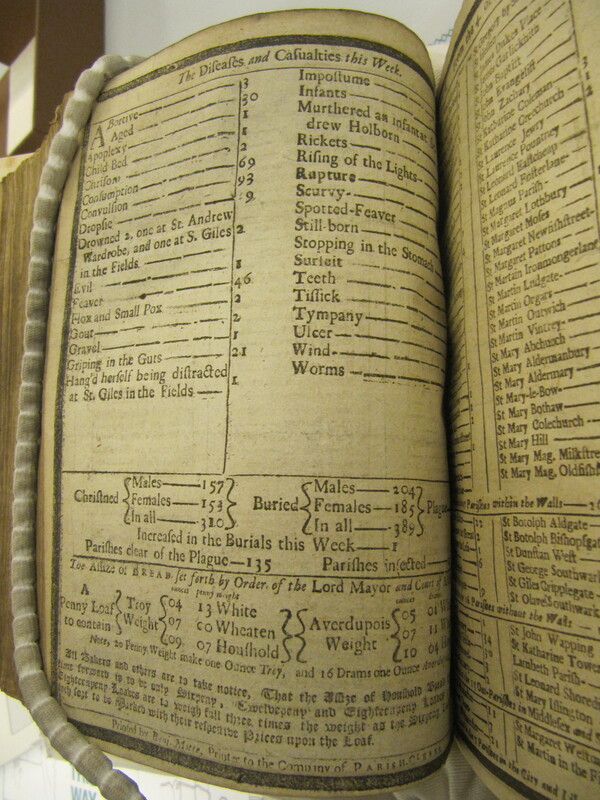 The Diseases and Casualties this Week.
Abortive 3
Aged 30
Apoplexy 1
Child Bed 1
Chrisom 2
Consumption 69
Convulsion 93
Dropsie 9
Drowned 2, one at St. Andrew
Wardrobe, and one at S. Giles 2
in the Fields
Evil 1
Feaver 46
Flox and Small Pox 2
Gout 2
Gravel 1
Griping in the Guts 21
Hang'd herself being distracted
at St. Giles in the Fields 1
Impostume
Infants
Murthered an infant at
drew Holborn
Rickets
Rising of the Lights
Rupture
Scurvy
Spotted-Feaver
Still-born
Stopping in the Stomach
Surfeit
Teeth
Tissick
Tympany
Ulcer
Wind
Worms
Christned Males 157
Females 153
In all 310
Buried Males 204
Females 185
In all 389
Plague
Increased in the Burials this Week 1
Parishes clear of the Plague 135 Parishes infected
The Assize of BREAD set forth by Order of the Lord Mayor and Court of
ounces penny weight
A
Penny Loaf
to contain
Troy
Weight
04 13 White
07 00 Wheaten
09 07 Houshold
Averdupois
Weight
05 01
07 11
10 04
Note, 20 Penny Weight make one Ounce Troy, and 16 Drams one Ounce
All Bakers and others are to take notice, That the Assize of Houshold Bread
time forward is to be only Sixpeny, Twelvepeny and Eighteenpeny Loaves
Eighteenpeny Loaves are to weigh full three times the weight as the Sixpeny
with their respective Prices upon the Loaf.
Printer to the Company of PARISH-CLERKS
John Baptist
John Evangelist
John Zachary
Katharine Coleman
Katharine Creechurch
St Laurence Jewry
St Laurence Pountney
St Leonard Eastcheap
St Leonard Fosterlane
St Magnus Parish
St Margaret Lothbury
St Margaret Moses
St Margaret Newfishstreet
St Margaret Pattons
St Martin Ironmongerlane
St Martin Ludgate
St Martin Orgars
St Martin Outwich
St Martin Vintrey
St Mary Abchurch
St Mary Aldermanbury
St Mary Aldermary
St Mary-le-Bow
St Mary Bothaw
St Mary Colechurch
St Mary Hill
St Mary Mag. Milkstreet
St Mary Mag. Oldfish
Parishes within the Walls
St Botolph Aldgate
St Botolph Bishopsgate
St Dunstan West
St George Southwark
St Giles Cripplegate
St Olave Southwark
Parishes without the Walls
St John Wapping
St Katharine Tower
Lambeth Parish
St Leonard Shoreditch
St Mary Islington
St Margaret Westm
St Martin in the